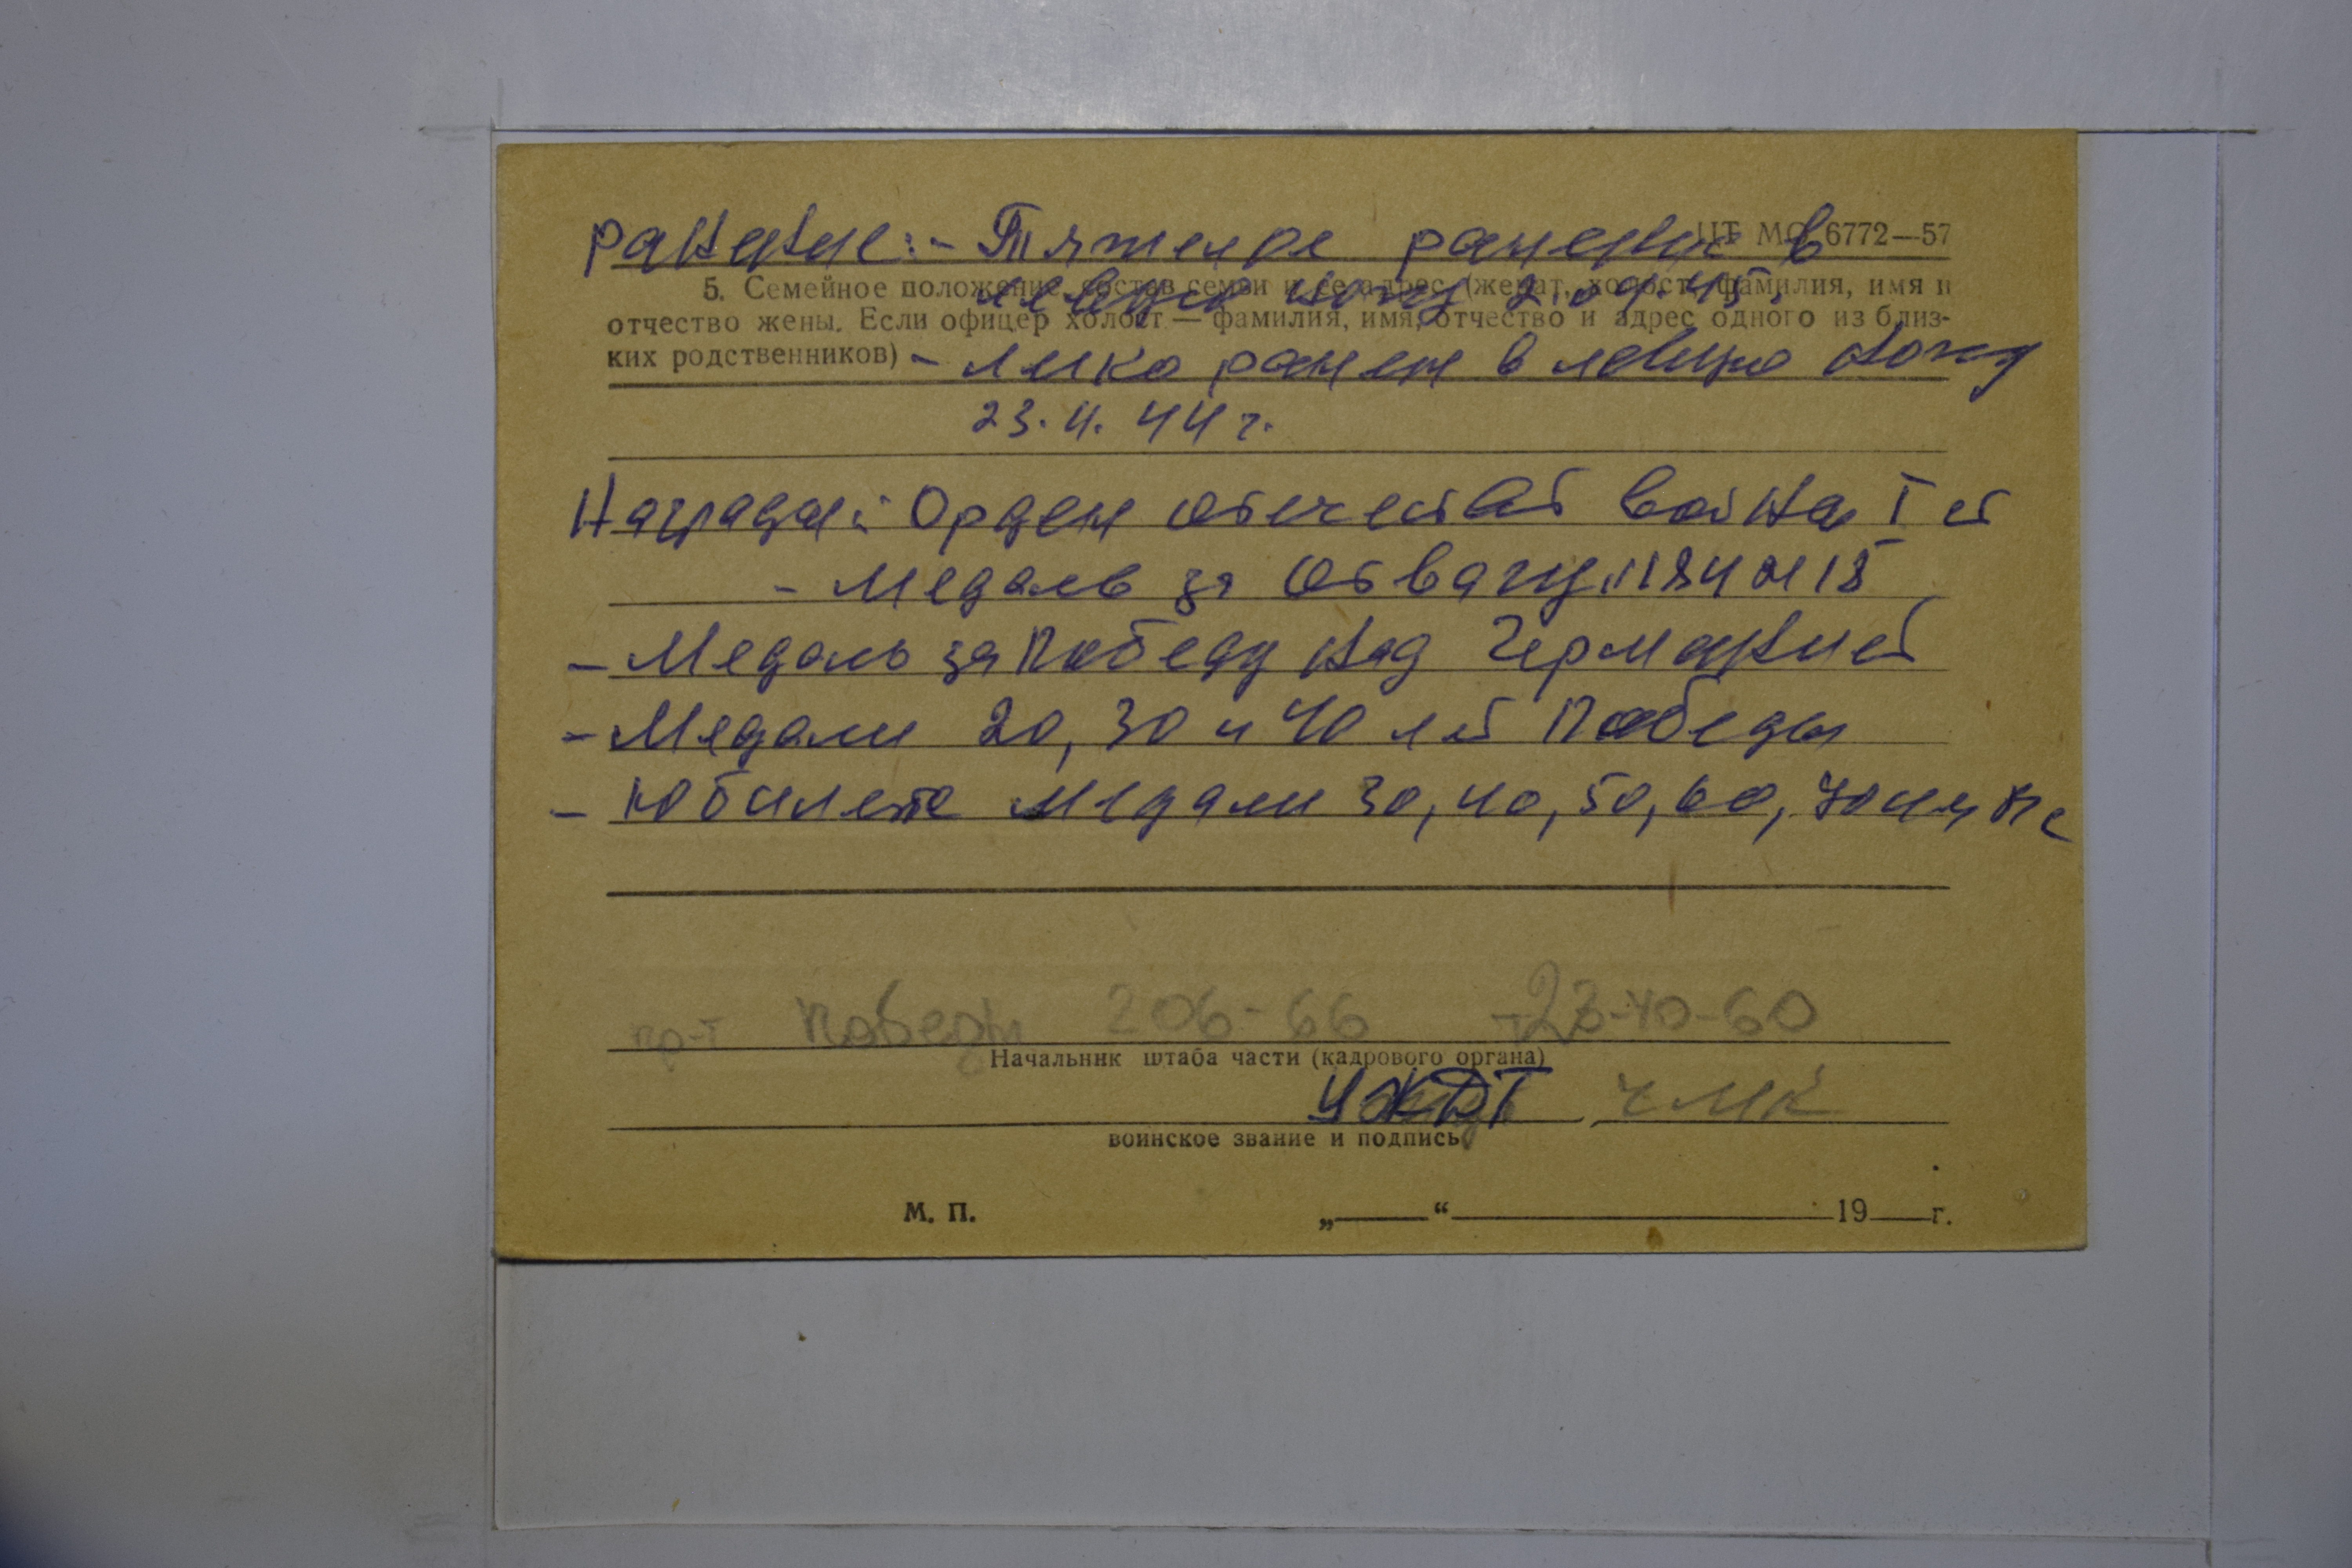 ранение:- Тяжелое ранение в
ЦТ МО 6772—57
5. Семейное положение, состав семьи и ее адрес (женат, холост, фамилия, имя и
левую ногу 2.04.45.
отчество жены. Если офицер холост — фамилия, имя, отчество и адрес одного из близ-
ких родственников) - легко ранен в левую ногу
23.4.44 г.
Награды: Орден отечест войны I ст
- Медаль за Отвагу
- Медаль за Победу над Германией
- Медали 20, 30 и 40 лет Победы
- Юбилейные медали 30, 40, 50, 60, 70
пр-т Победы 206-66 т 23-40-60
Начальник штаба части (кадрового органа)
ЧМК
воинское звание и подпись
М. П. „ “ 19 г.